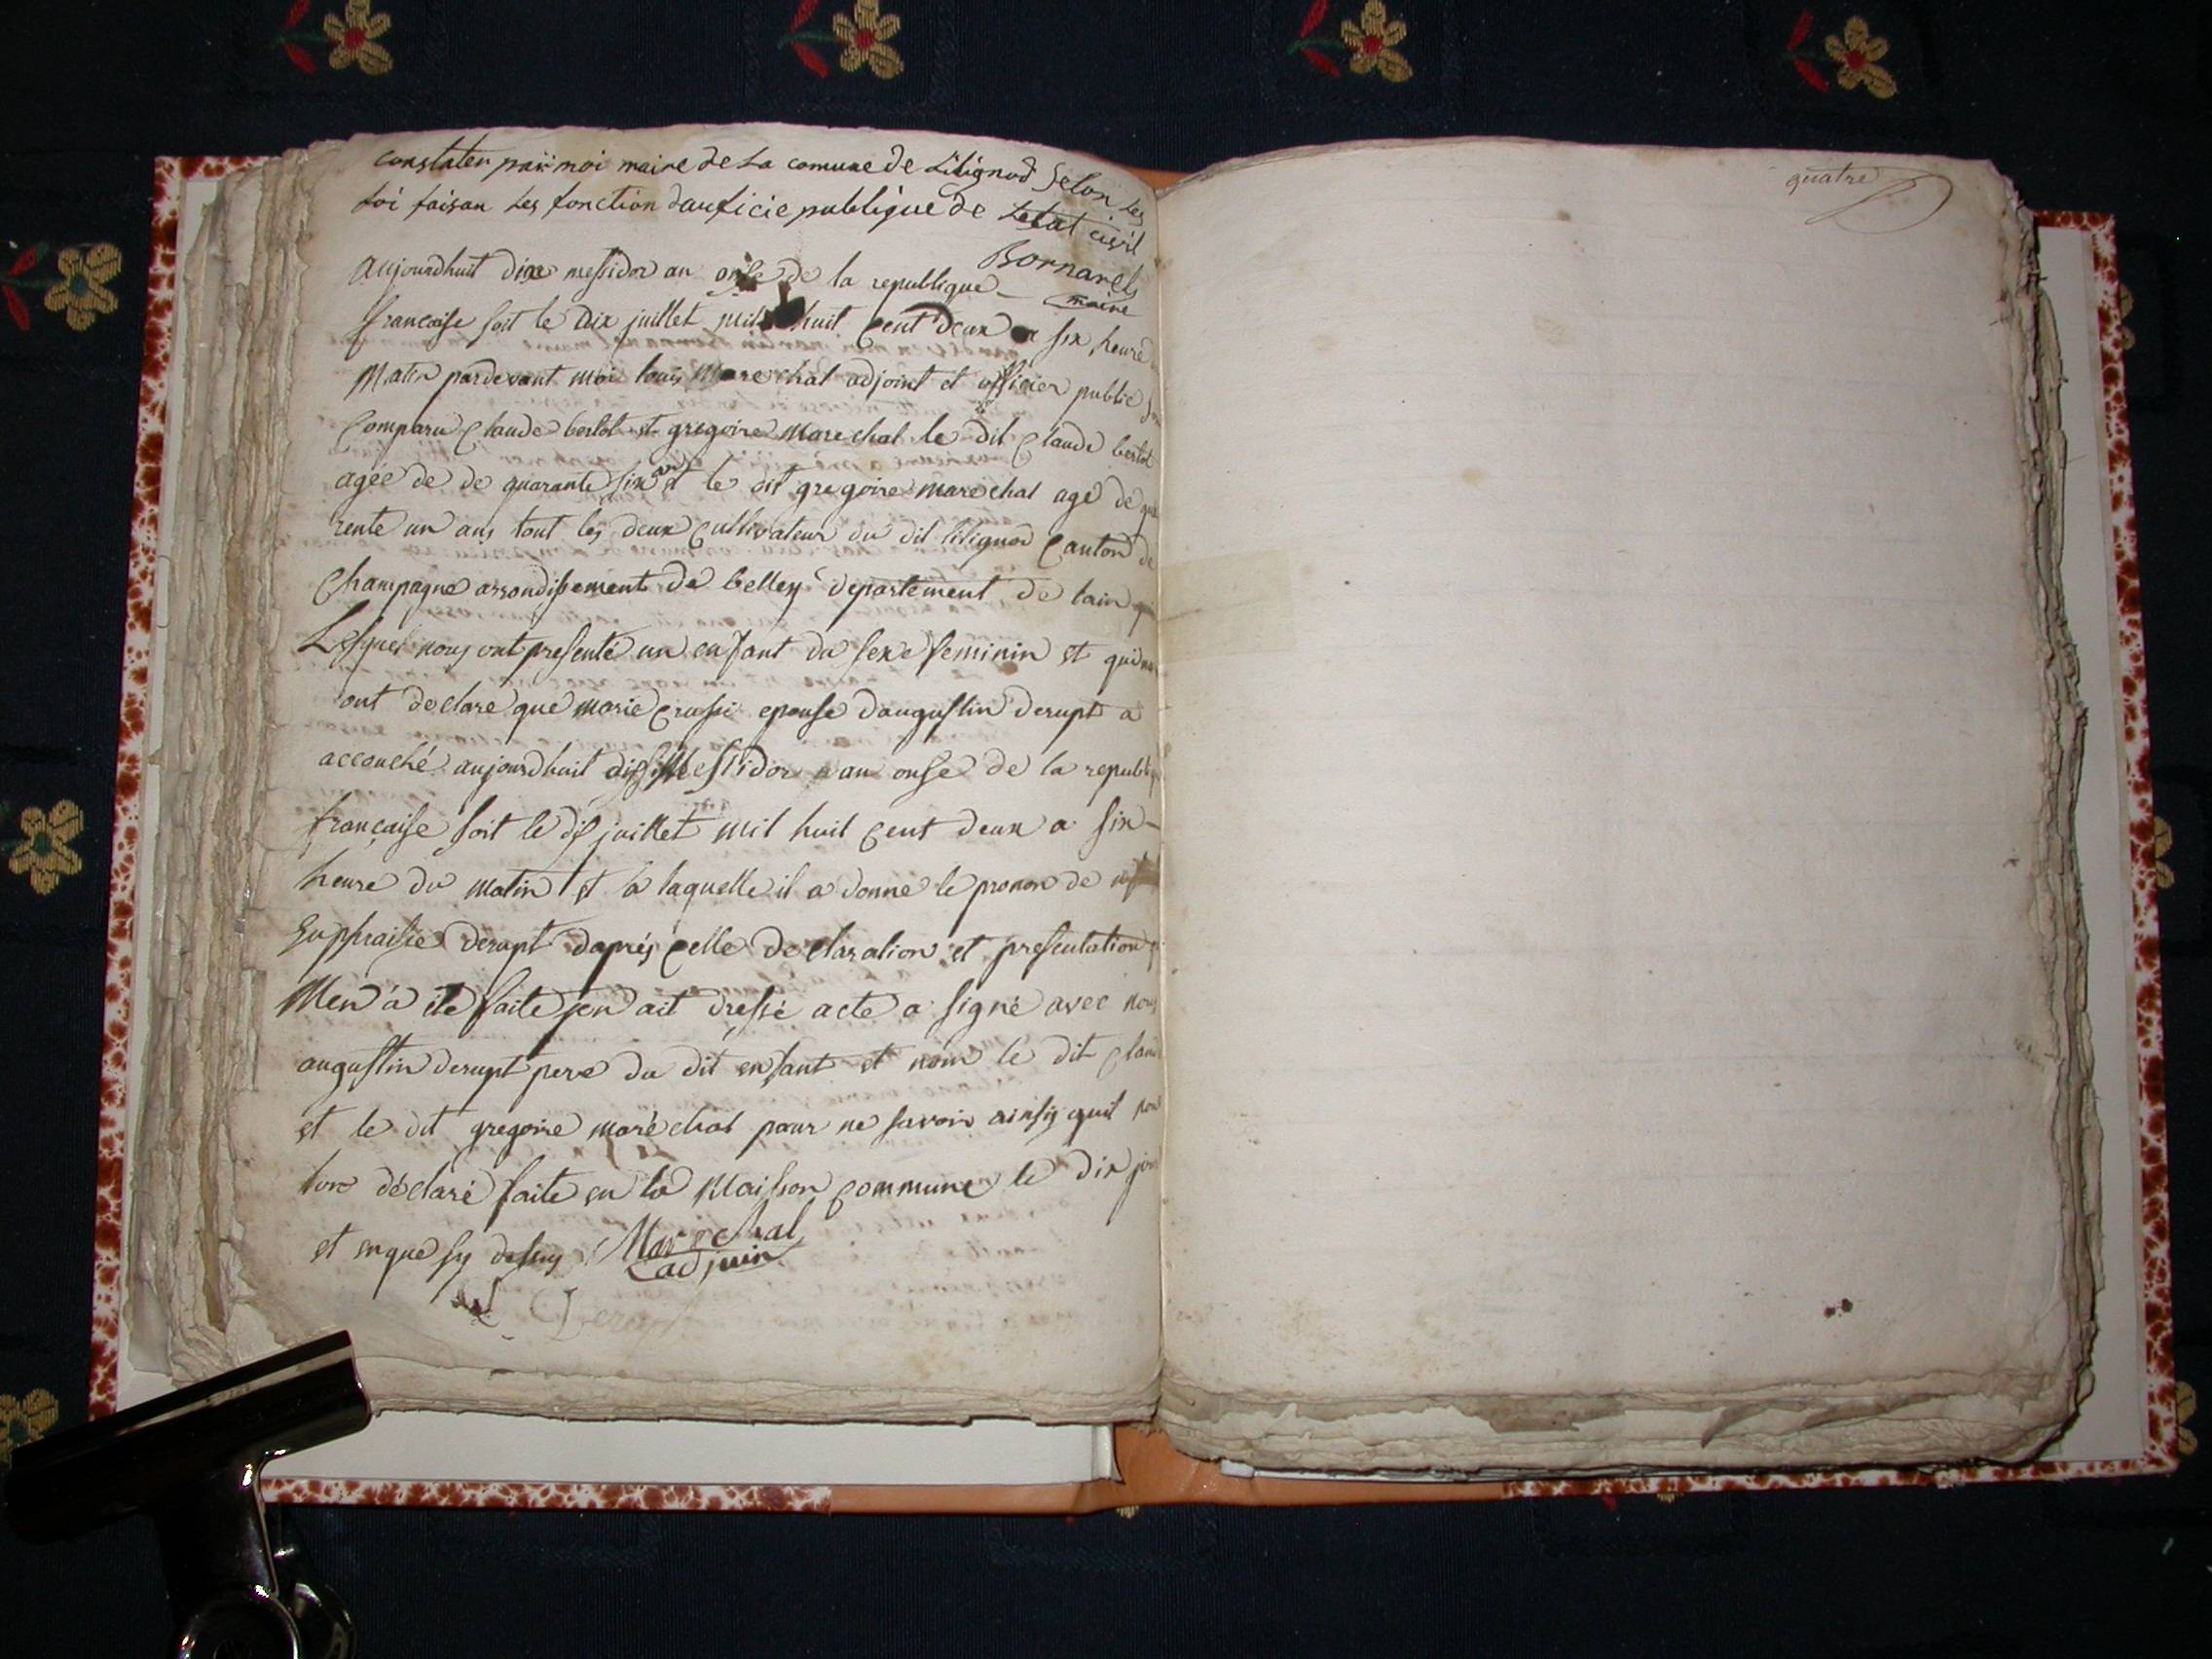 constater par moi maire de La comune de Litignod Selon Les
Loi faisan Les fonction dauficie publique de Letat civil
Bornarels
maire
aujourdhuit dixe messidor an onse de la republique
francaise soit le dix juillet mil huit cent deux a six heure
Matin pardevant moi louis Marechal adjoint et officier public
Comparu Claude bertet et gregoire Marechal le dit Claude bertet
agée de de quarante six an et le dit gregoire marechal agé de qua
rente un ans tout les deux Cultivateur du dit litignod Canton de
Champagne arrondissement de belley departement de lain
Lesquel nous ont presenté un enfant du sexe feminin et qui
ont declare que marie epouse daugustin derupt a
accouché aujourdhuit messidor an onse de la republi
française soit le dis juillet mil huit cent deux a six
heure du matin et a laquelle il a donne le pronon de
Euphraisie derupt daprés celle declaration et presentation
Men a ete faite jen ait dressé acte a signé avec nous
augustin derupt pere du dit enfant et nom le dit Claud
et le dit gregoire maréchal pour ne savoir ainsy quil
lon déclaré faite en la Maison Commune le dix jour
et en que sy desus Marechal
adjoin
quatre